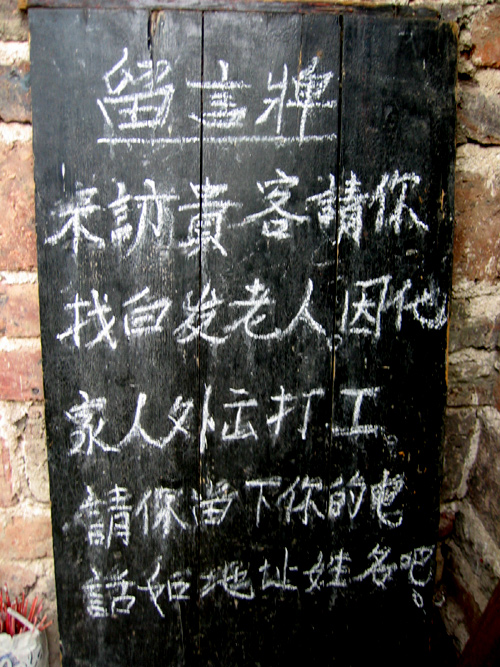 留言牌
来訪貴客請你
找白发老人。因他
家人外出打工。
請你留下你的电
話和地址姓名吧。